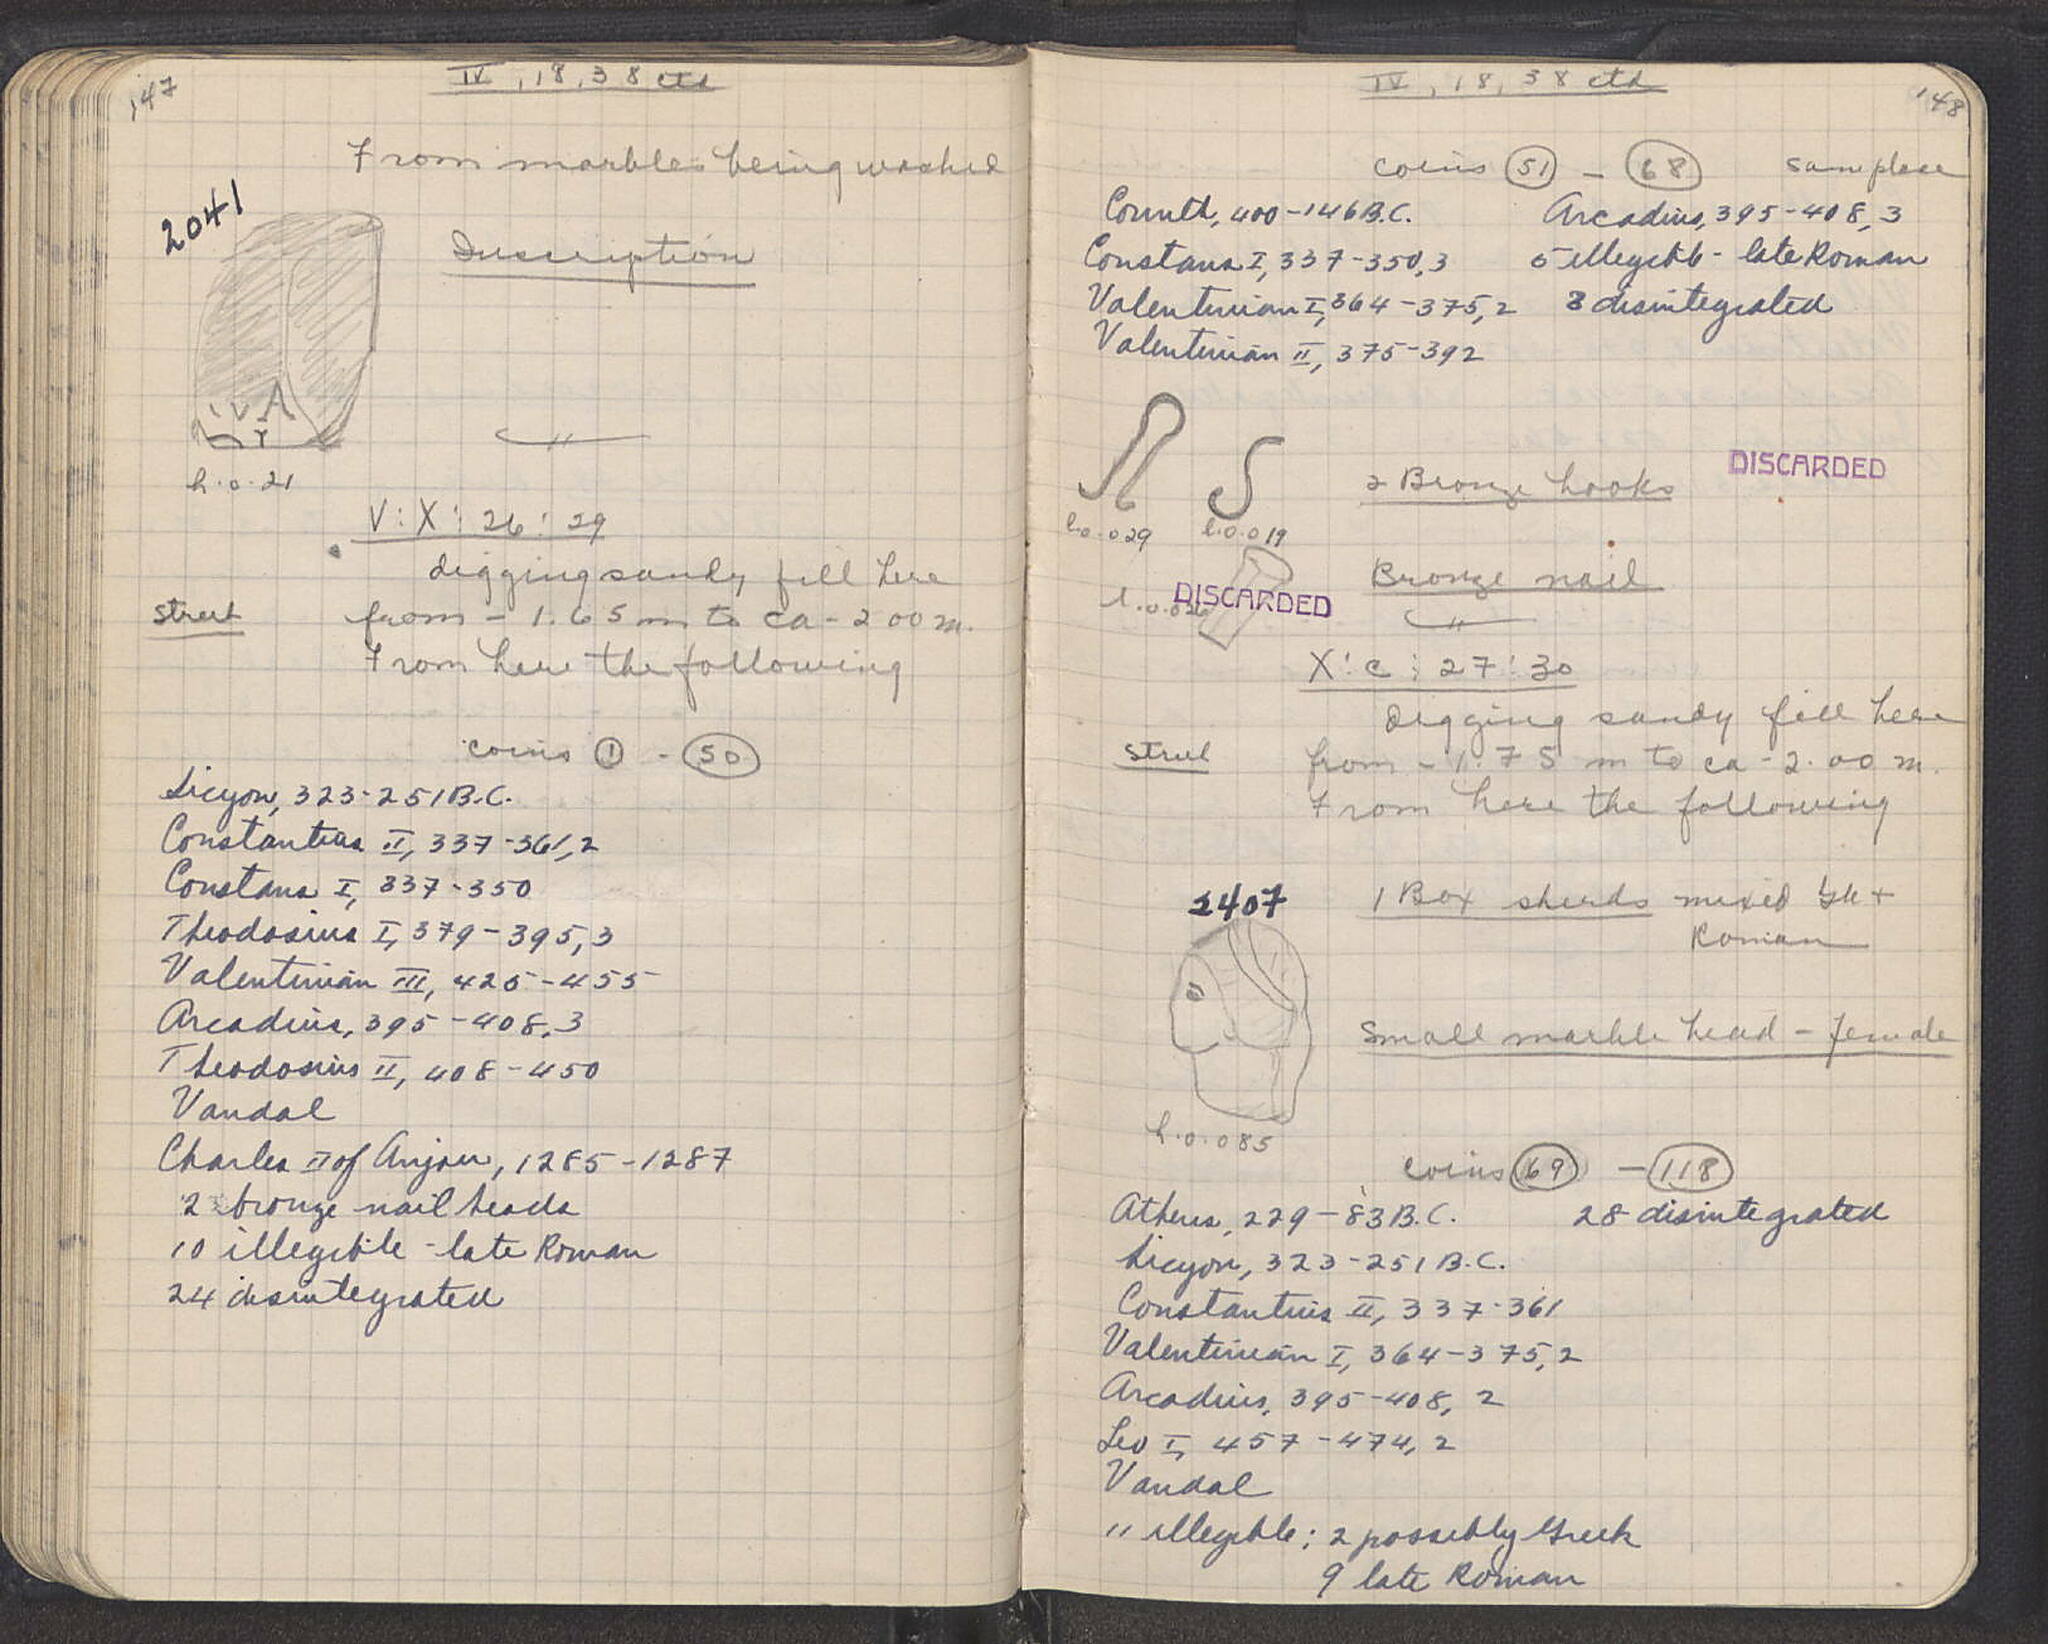 147
IV, 18, 38 ctd
From marbles being washed
2041
Inscription
h. 0.21
V:X⋮26:29
digging sandy fill here
Street
from - 1.65 m to ca - 2.00 m.
From here the following
coins 1 - 50
Sicyon, 323-251 B.C.
Constantius II, 337-361, 2
Constans I, 337-350
Theodosius I, 379-395, 3
Valentinian III, 425-455
Arcadius, 395-408, 3
Theodosius II, 408-450
Vandal
Charles II of Anjou, 1285-1287
2 bronze nail heads
10 illegible - late Roman
24 disintegrated
IV, 18, 38 ctd
148
coins 51 - 68 same place
Corinth, 400-146 B.C.
Constans I, 337-350, 3
Valentinian I, 364-375, 2
Valentinian II, 375-392
Arcadius, 395-408, 3
5 illegible - late Roman
8 disintegrated
DISCARDED
2 Bronze hooks
l. 0.029
l. 0.019
Bronze nail
DISCARDED
X:C⋮27:30
Digging sandy fill here
Street
from - 1.75 m to ca - 2.00 m.
From here the following
1 Box sherds mixed Gk +
Roman
2407
Small marble head - female
h. 0.085
coins 69 - 118
Athens, 229-83 B.C.
Sicyon, 323-251 B.C.
Constantius II, 337-361
Valentinian I, 364-375, 2
Arcadius, 395-408, 2
Leo I, 457-474, 2
Vandal
11 illegible: 2 possibly Greek
9 late Roman
28 disintegrated